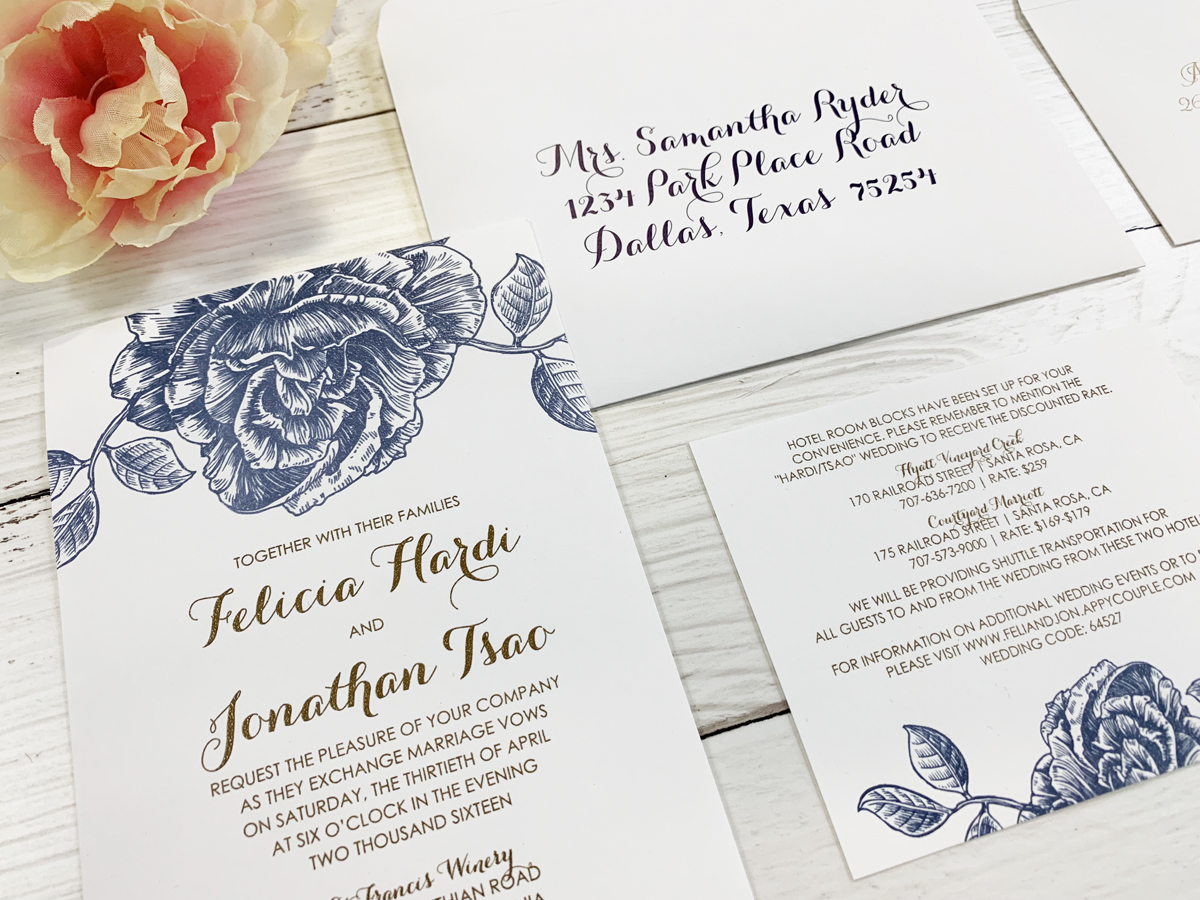 Mrs. Samantha Ryder
1234 Park Place Road
Dallas, Texas 75254
TOGETHER WITH THEIR FAMILIES
Felicia Hardi
AND
Jonathan Tsao
REQUEST THE PLEASURE OF YOUR COMPANY
AS THEY EXCHANGE MARRIAGE VOWS
ON SATURDAY, THE THIRTIETH OF APRIL
AT SIX O'CLOCK IN THE EVENING
TWO THOUSAND SIXTEEN
Francis Winery
ROAD
HOTEL ROOM BLOCKS HAVE BEEN SET UP FOR YOUR
CONVENIENCE. PLEASE REMEMBER TO MENTION THE
"HARDI/TSAO" WEDDING TO RECEIVE THE DISCOUNTED RATE.
Hyatt Vineyard Creek
170 RAILROAD STREET | SANTA ROSA, CA
707-636-7200 | RATE: $259
Courtyard Marriott
175 RAILROAD STREET | SANTA ROSA, CA
707-573-9000 | RATE: $169-$179
WE WILL BE PROVIDING SHUTTLE TRANSPORTATION FOR
ALL GUESTS TO AND FROM THE WEDDING FROM THESE TWO HOTEL
FOR INFORMATION ON ADDITIONAL WEDDING EVENTS OR TO
PLEASE VISIT WWW.FELIANDJON.APPYCOUPLE.COM
WEDDING CODE: 64527